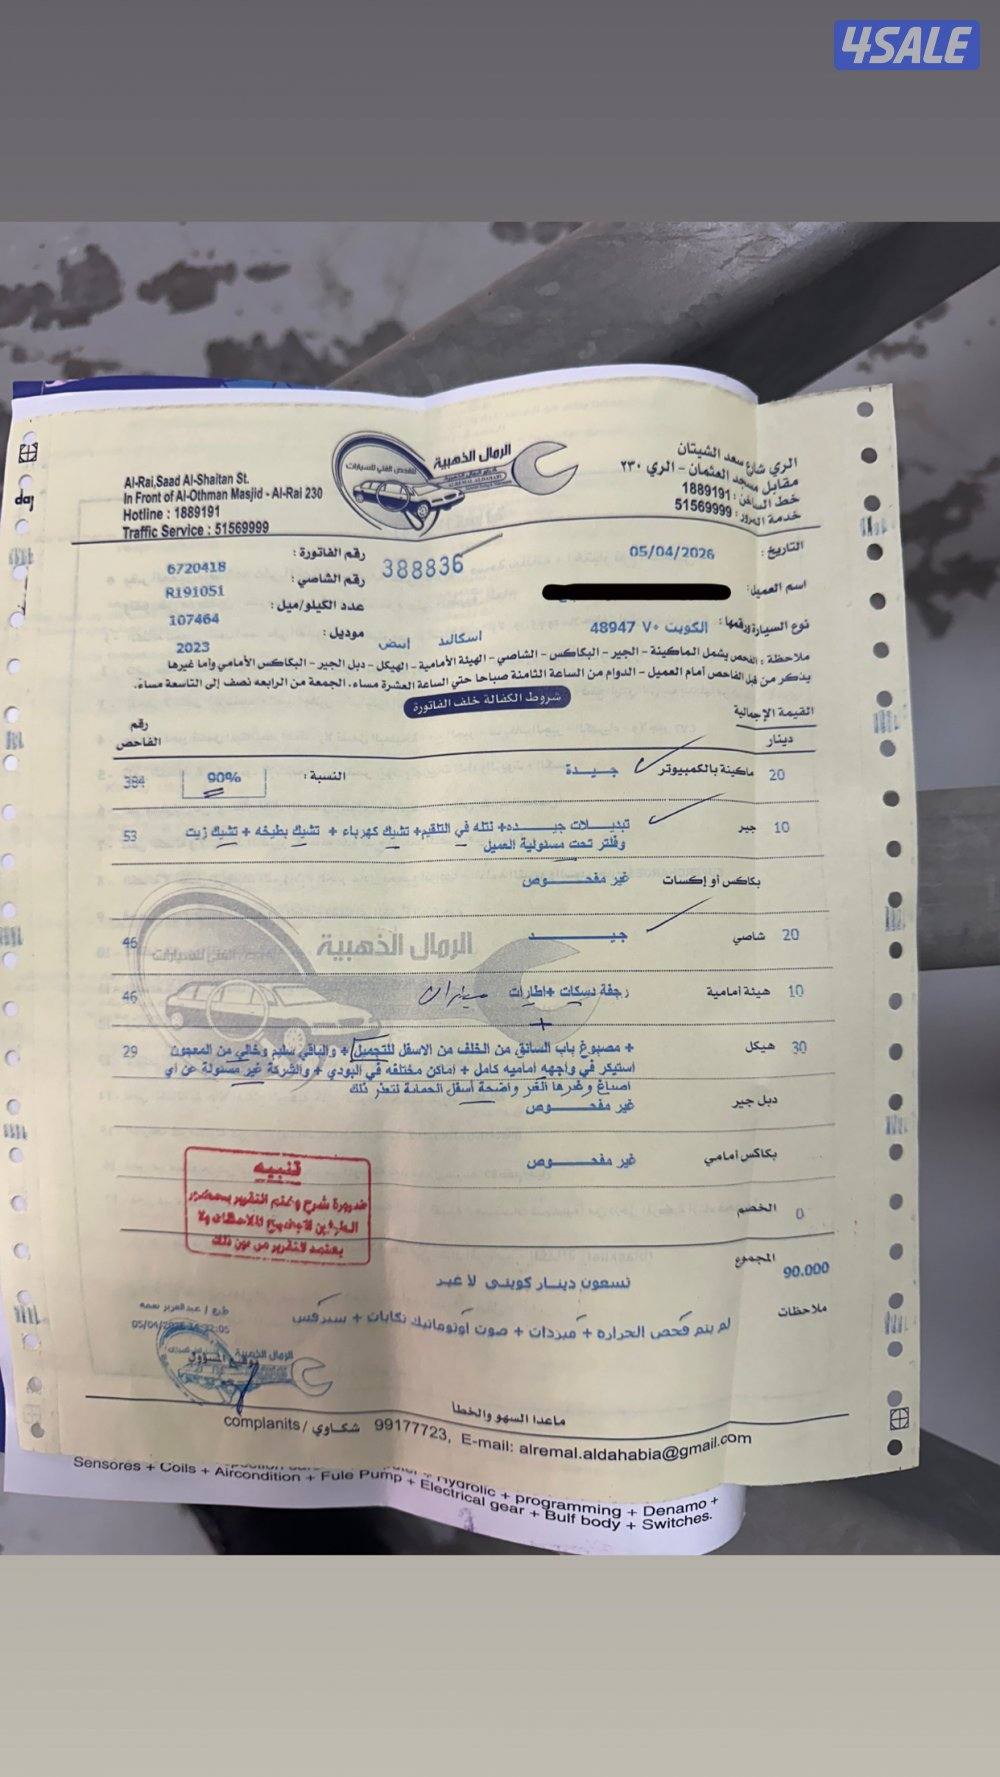 4SALE
الري شارع سعد الشيتان
مقابل مسجد العثمان - الري ٢٣٠
خط الساخن : 1889191
خدمة المرور : 51569999
الرمال الذهبية
للفحص الفني للسيارات
Al-Rai,Saad Al-Shaitan St.
In Front of Al-Othman Masjid - Al-Rai 230
Hotline : 1889191
Traffic Service : 51569999
التاريخ : 05/04/2026
388836
رقم الفاتورة : 6720418
اسم العميل :
رقم الشاصي : R191051
عدد الكيلو/ميل : 107464
نوع السيارة ورقمها : الكويت ٧٠ 48947 اسكاليد ابيض
موديل : 2023
ملاحظة : الفحص يشمل الماكينة - الجير - البكاكس - الشاصي - الهيئة الأمامية - الهيكل - دبل الجير - البكاكس الأمامي وأما غيرها
يذكر من قبل الفاحص أمام العميل - الدوام من الساعة الثامنة صباحا حتي الساعة العشرة مساء، الجمعة من الرابعه نصف إلى التاسعة مساء.
شروط الكفالة خلف الفاتورة
القيمة الإجمالية
دينار
رقم
الفاحص
20 ماكينة بالكمبيوتر جيدة النسبة : 90% 384
10 جير تبديلات جيده+ نتله في التلقيم+ تشيك كهرباء + تشيك بطيخه + تشيك زيت 53
وفلتر تحت مسئولية العميل
بكاكس أو إكسات غير مفحوص
20 شاصي جيد 46
الرمال الذهبية
10 هيئة أمامية رجفة دسكات +اطارات ميزان 46
30 هيكل + مصبوغ باب السائق من الخلف من الاسفل للتجميل + والباقي سليم وخالي من المعجون 29
استيكر في واجهه اماميه كامل + اماكن مختلفه في البودي + والشركة غير مسئولة عن اي
اصباغ وغرها الغر واضحة أسفل الحماية لتعذر ذلك
دبل جير غير مفحوص
بكاكس أمامي غير مفحوص
تنبيه
ضرورة شرح وختم التقرير بحضور
الطرفين لتوضيح الملاحظات ولا
يعتمد التقرير من دون ذلك
الخصم 0
المجموع 90.000
تسعون دينار كويتي لا غير
ملاحظات لم يتم فحص الحراره + مبردات + صوت أوتوماتيك تكايات + سيرفس
05/04/2026
الرمال الذهبية
توقيع المسؤول
ماعدا السهو والخطأ
complanits / شكاوي 99177723, E-mail: alremal.aldahabia@gmail.com
Hydrolic + programming + Denamo +
Sensores + Coils + Aircondition + Fule Pump + Electrical gear + Bulf body + Switches.